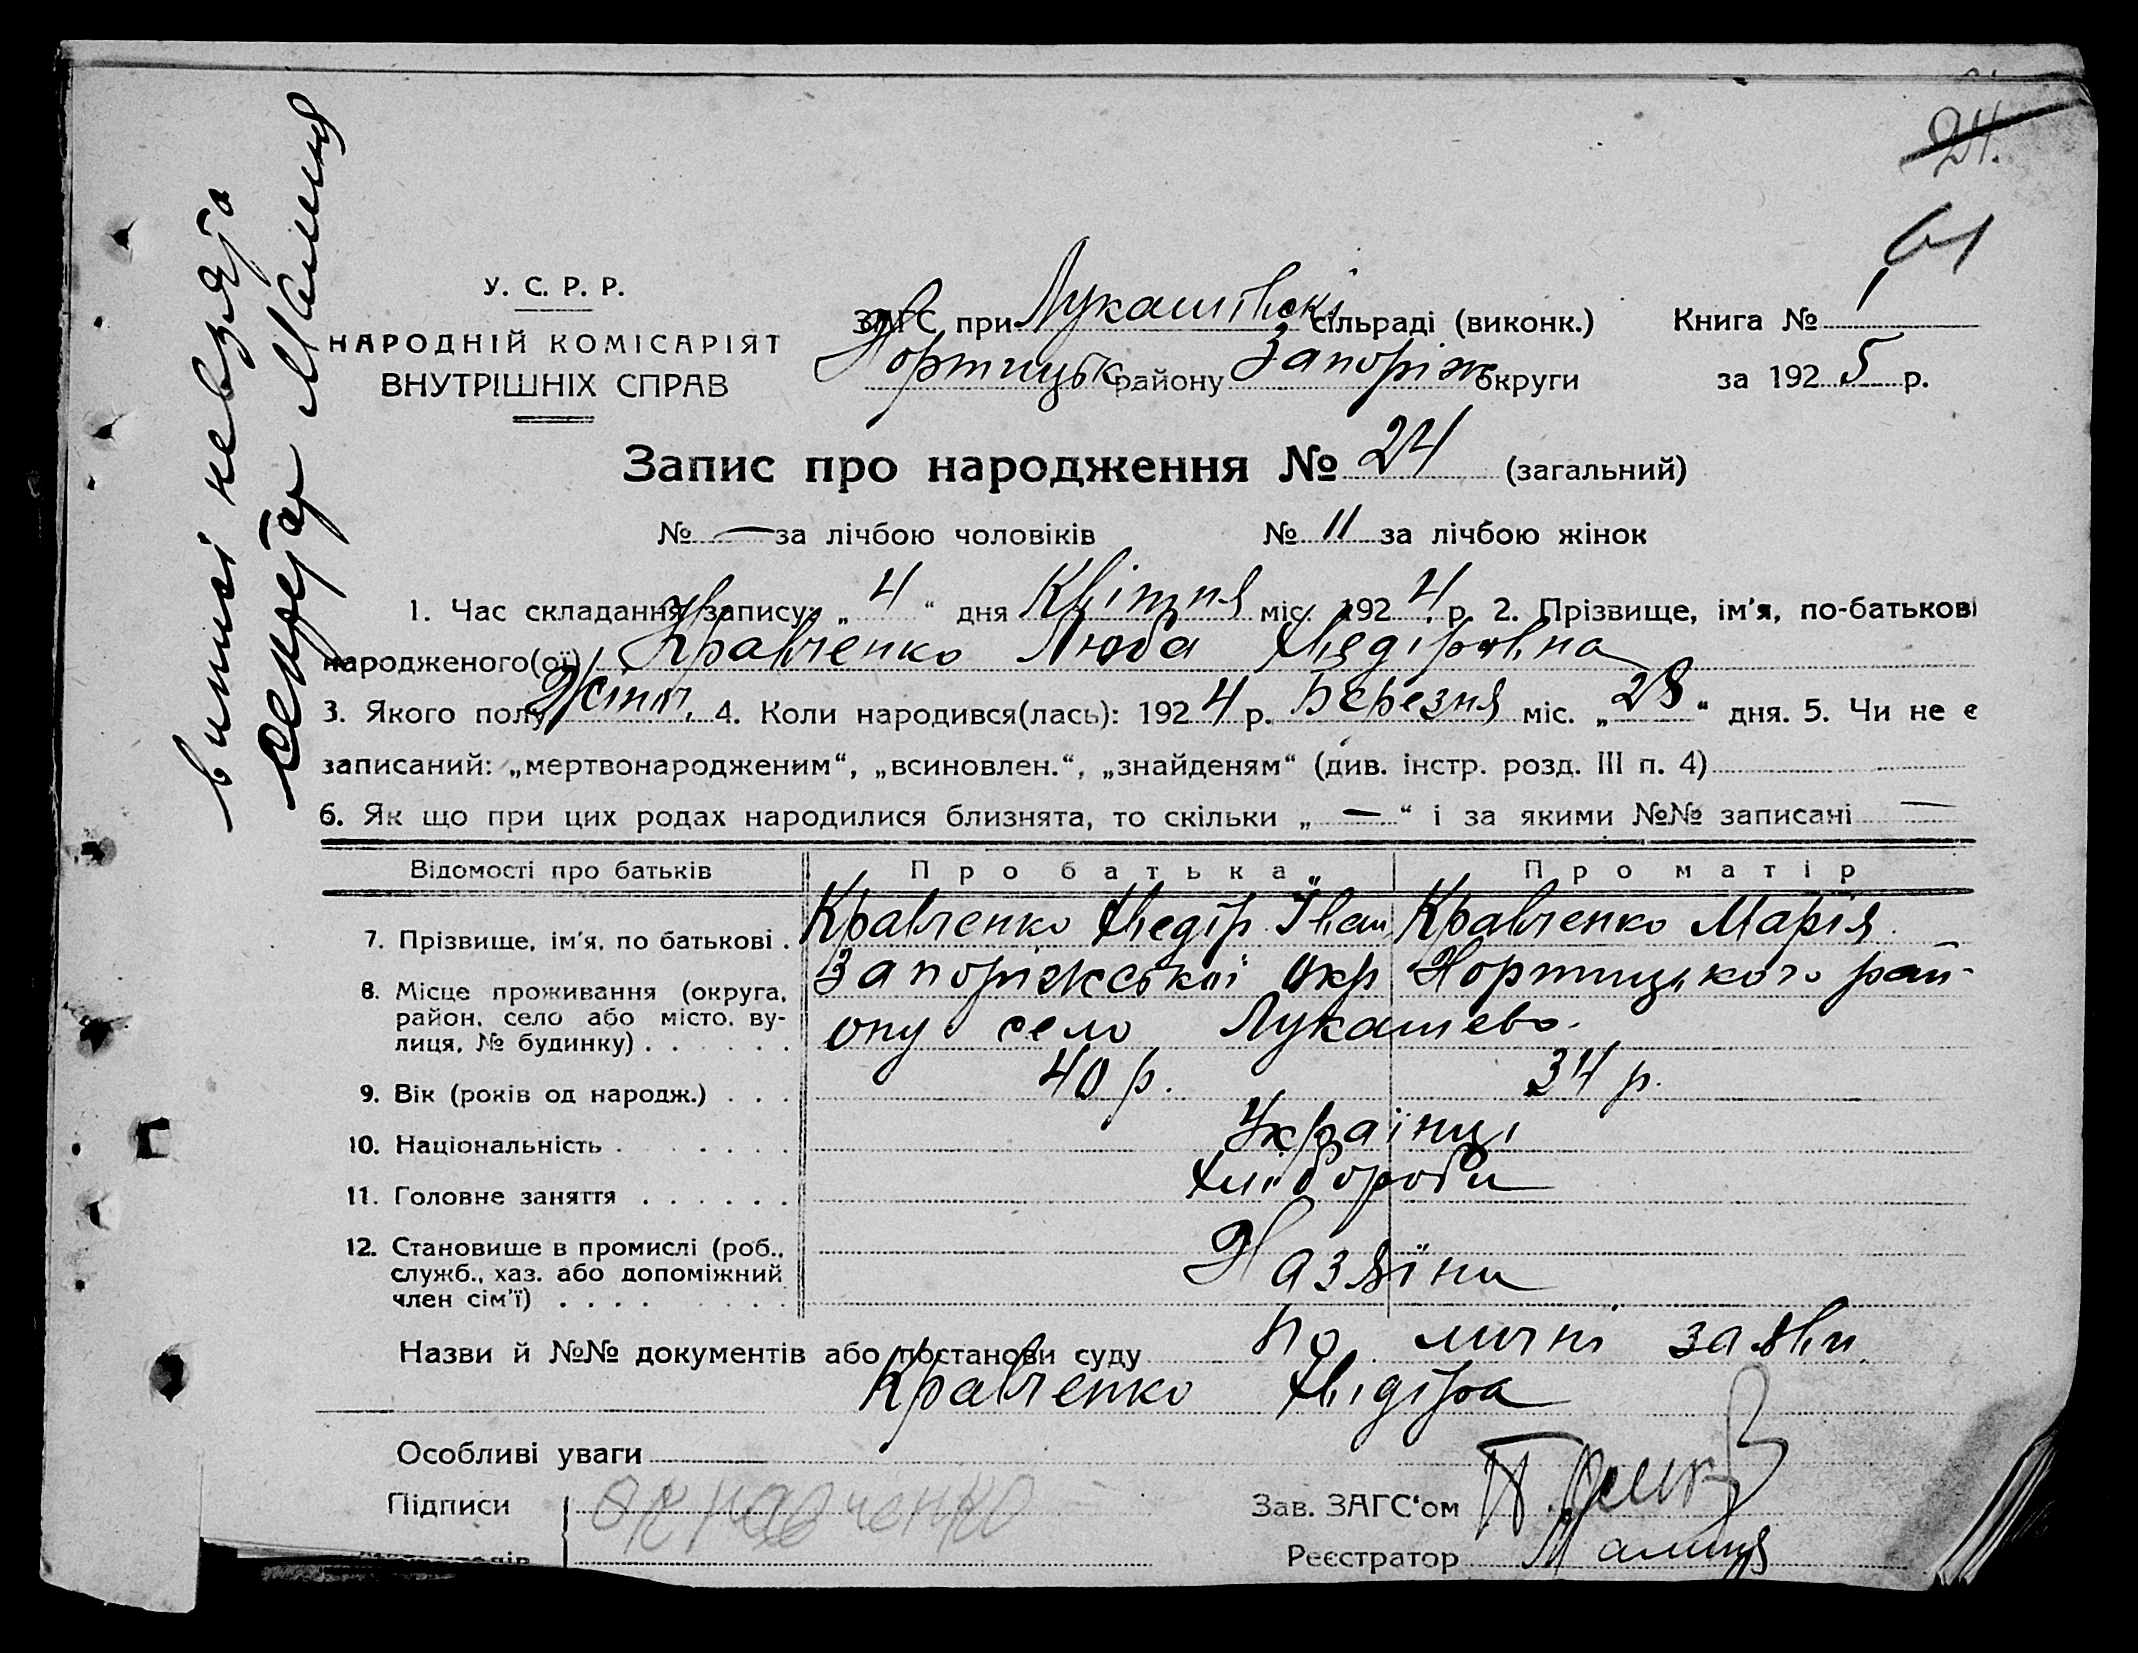 24.
61
витяг невзято
секретар Малиця
У. С. Р. Р.
НАРОДНІЙ КОМІСАРІЯТ
ВНУТРІШНІХ СПРАВ
ЗАГС при Лукашівскі сільраді (виконк.)
Хортицьк району Запоріж округи
Книга № 1
за 1925 р.
Запис про народження № 24 (загальний)
№ — за лічбою чоловіків № 11 за лічбою жінок
1. Час складання запису: „4“ дня Квітня міс. 1924 р. 2. Прізвище, ім'я, по-батькові
народженого(ої) Кравченко Люба Хведіровна
3. Якого полу Жіноч. 4. Коли народився(лась): 1924 р. Березня міс. „28“ дня. 5. Чи не є
записаний: „мертвонародженим“, „всиновлен.“, „знайденям“ (див. інстр. розд. III п. 4)
6. Як що при цих родах народилися близнята, то скільки „—“ і за якими №№ записані —
Відомості про батьків Про батька Про матір
7. Прізвище, ім'я, по батькові . Кравченко Хведір Іван Кравченко Марія
8. Місце проживання (округа, Запоріжської окр Хортицького рай-
район, село або місто, ву-
лиця, № будинку) . . . . . . ону село Лукашево.
9. Вік (років од народж.) . . . 40 р. 34 р.
10. Національність . . . . . . . Українці
11. Головне заняття . . . . . . Хліібороби
12. Становище в промислі (роб.,
служб., хаз. або допоміжний Хазяїни
член сім'ї) . . . .
Назви й №№ документів або постанови суду По личні заяви
Кравченко Хвідіра
Особливі уваги
Підписи Кравченко
Зав. ЗАГС'ом
Реєстратор Малиця